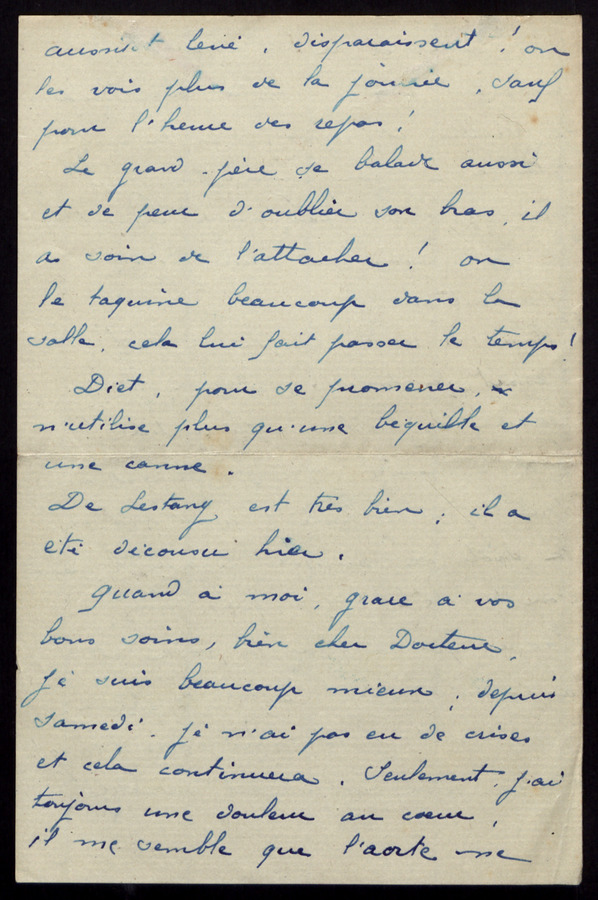 aussitôt levé, disparaissent ! on
les vois plus de la journée, sauf
pour l'heure des repas !
Le grand-père se balade aussi
et de peur d'oublier son bras, il
a soin de l'attacher ! on
le taquine beaucoup dans la
salle, cela lui fait passer le temps !
Diet, pour se promener,
n'utilise plus qu'une béquille et
une canne.
De Lestang est très bien ; il a
été décousu hier.
Quand à moi, grace à vos
bons soins, bien cher Docteur,
je suis beaucoup mieux ; depuis
samedi. je n'ai pas eu de crises
et cela continuera. Seulement, j'ai
toujours une douleur au cœur,
il me semble que l'aorte ne